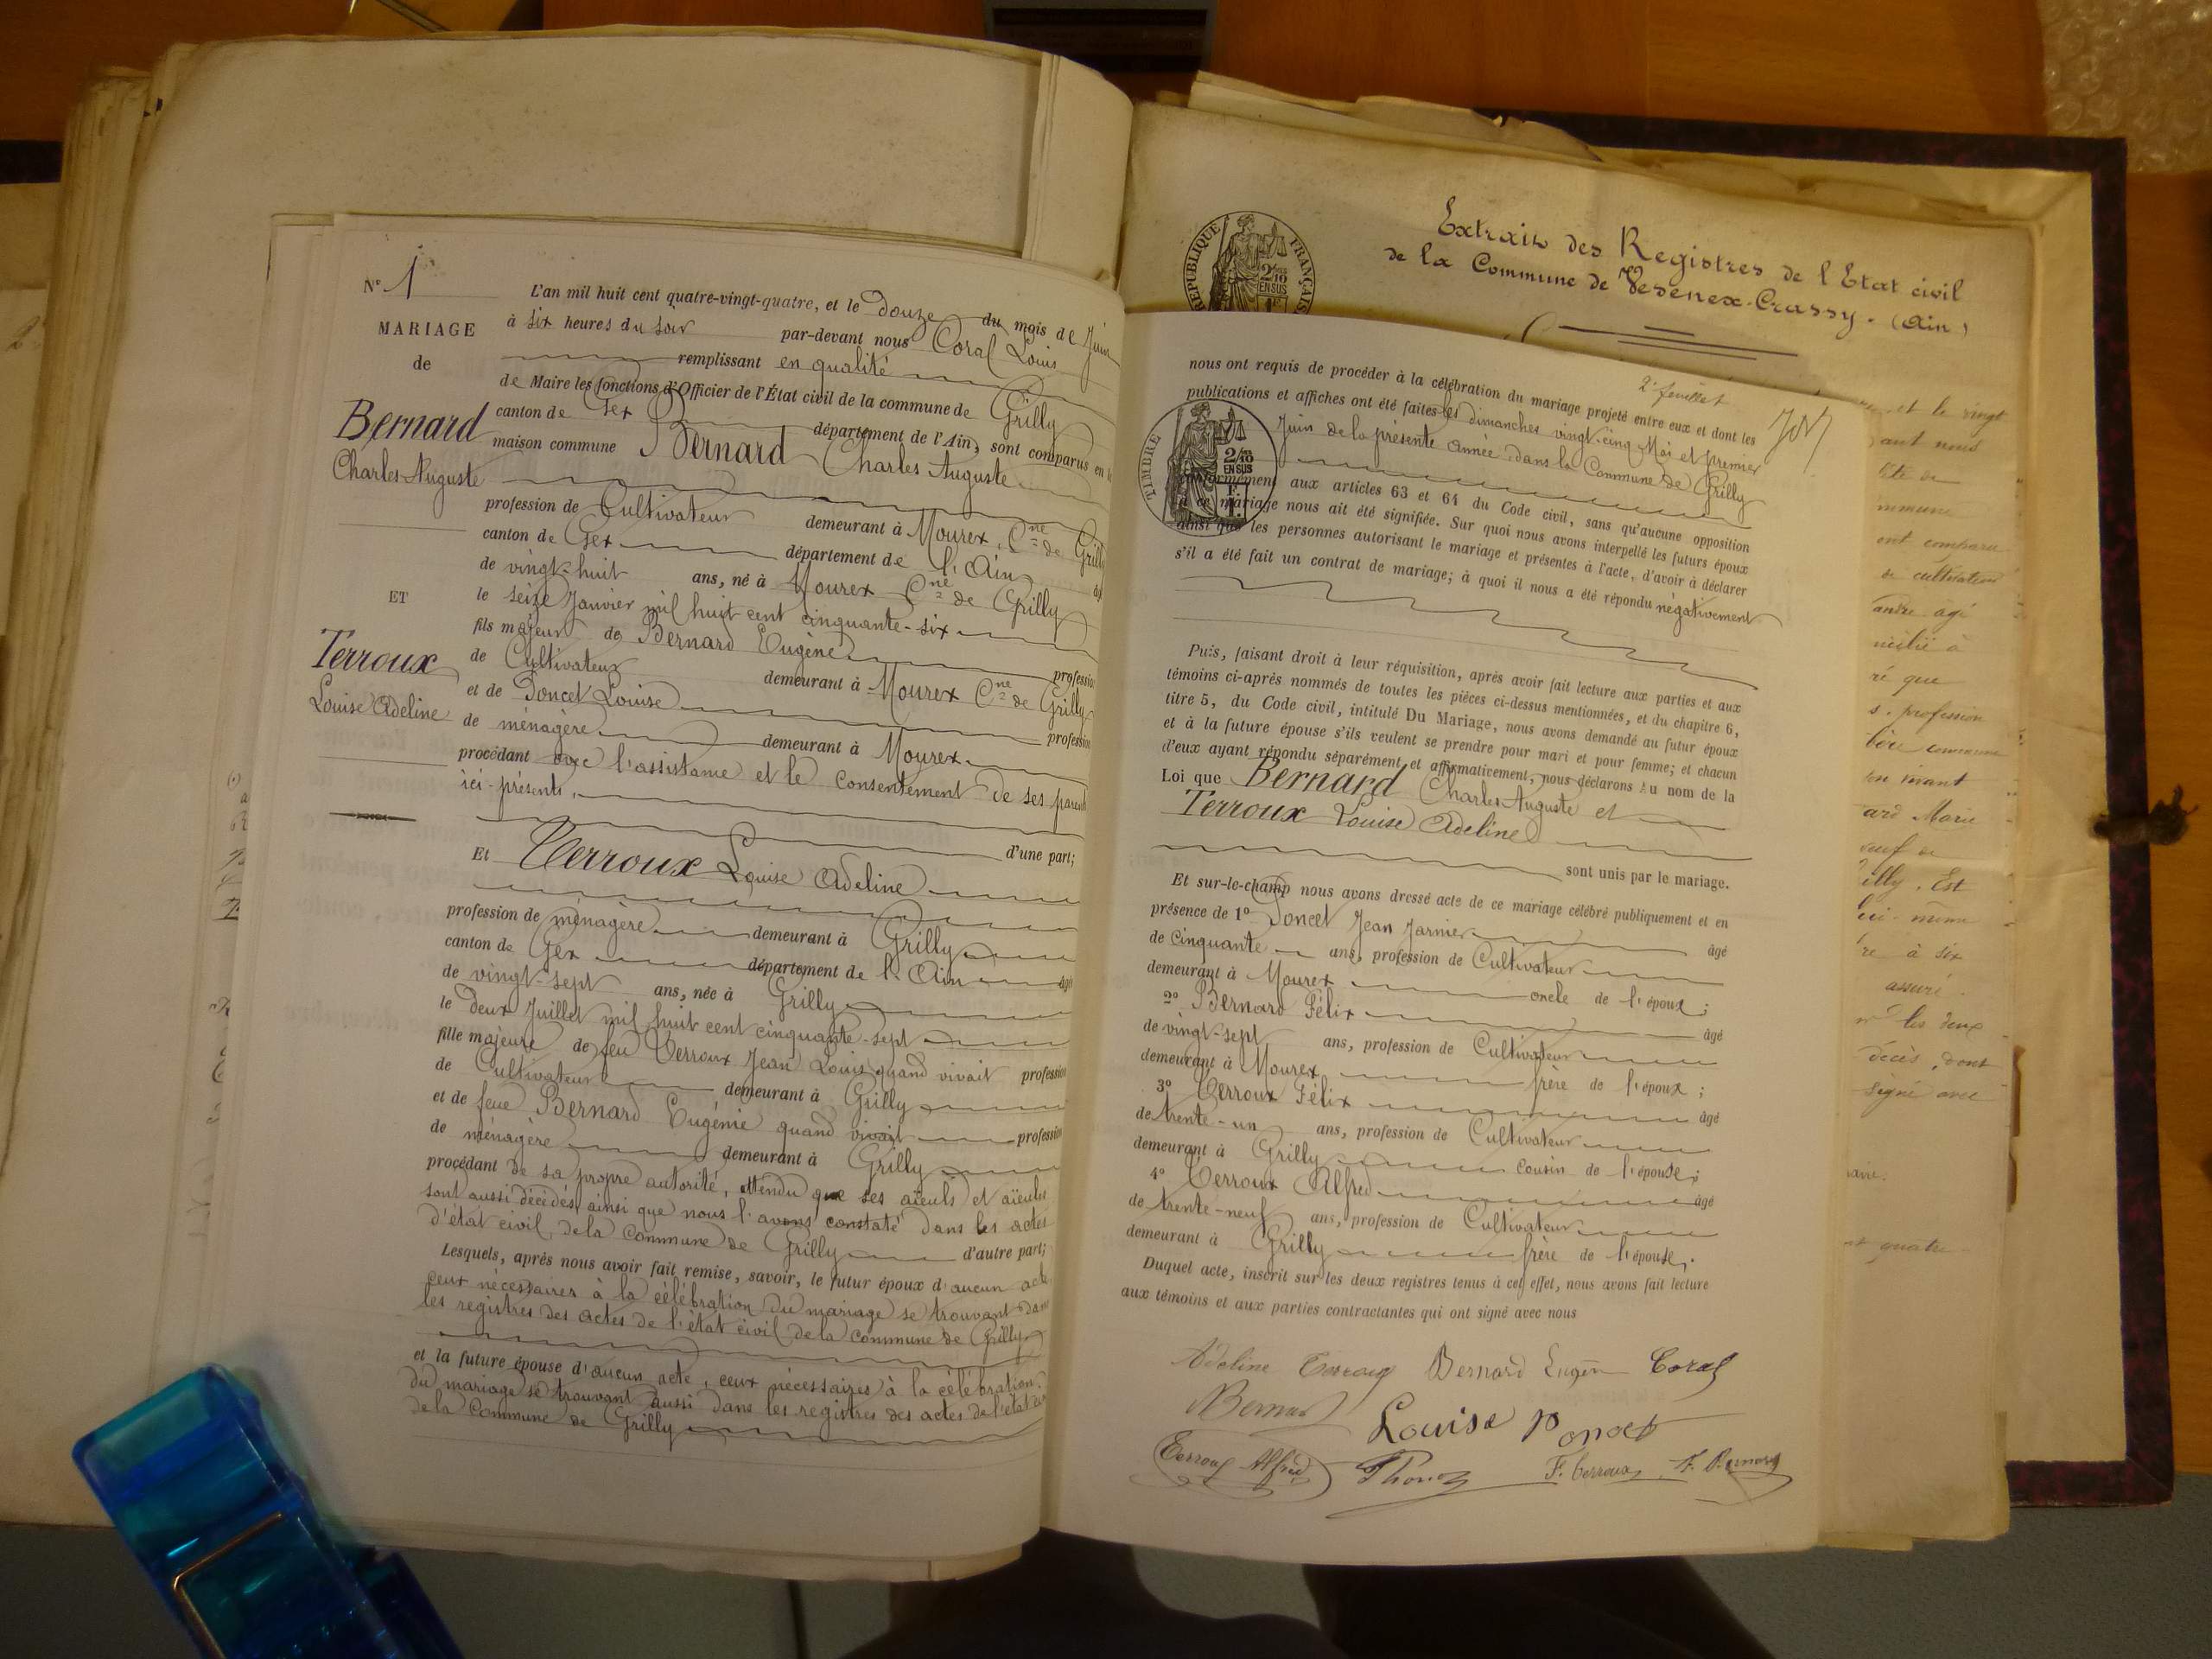 N° 1
MARIAGE
de
Bernard
Charles Auguste
ET
Terroux
Louise Adeline
L'an mil huit cent quatre-vingt-quatre, et le douze du mois de Juin
à six heures du soir par-devant nous Coral Louis
remplissant en qualité
de Maire les fonctions d'Officier de l'État civil de la commune de Grilly
canton de Gex département de l'Ain, sont comparus en la
maison commune Bernard Charles Auguste
profession de Cultivateur demeurant à Mourex, Cne de Grilly
canton de Gex département de l'Ain
de vingt-huit ans, né à Mourex Cne de Grilly
le seize Janvier mil huit cent cinquante-six
fils majeur de Bernard Eugène profession
de Cultivateur demeurant à Mourex Cne de Grilly
et de Poncet Louise profession
de ménagère demeurant à Mourex
procédant avec l'assistance et le consentement de ses parents
ici-présents,
d'une part;
Et Terroux Louise Adeline
profession de ménagère demeurant à Grilly
canton de Gex département de l'Ain âgé
de vingt-sept ans, née à Grilly
le deux Juillet mil huit cent cinquante-sept
fille majeure de feu Terroux Jean Louis quand vivait profession
de Cultivateur demeurant à Grilly
et de feue Bernard Eugénie quand vivait profession
de ménagère demeurant à Grilly
procédant de sa propre autorité, attendu que ses aïeuls et aïeules
sont aussi décédés, ainsi que nous l'avons constaté dans les actes
d'état civil de la Commune de Grilly d'autre part;
Lesquels, après nous avoir fait remise, savoir, le futur époux d'aucun acte
ceux nécessaires à la célébration du mariage se trouvant dans
les registres des actes de l'état civil de la commune de Grilly
et la future épouse d'aucun acte, ceux nécessaires à la célébration
du mariage se trouvant aussi dans les registres des actes de l'état civil
de la Commune de Grilly
Extrait des Registres de l'Etat civil
de la Commune de Vesenex-Crassy. (Ain)
RÉPUBLIQUE FRANÇAISE
2/10
EN SUS
2e feuillet
nous ont requis de procéder à la célébration du mariage projeté entre eux et dont les
publications et affiches ont été faites les dimanches vingt-cinq Mai et premier
Juin de la présente année, dans la Commune de Grilly
TIMBRE
2/10
EN SUS
conformément aux articles 63 et 64 du Code civil, sans qu'aucune opposition
à ce mariage nous ait été signifiée. Sur quoi nous avons interpellé les futurs époux
ainsi que les personnes autorisant le mariage et présentes à l'acte, d'avoir à déclarer
s'il a été fait un contrat de mariage; à quoi il nous a été répondu négativement
Puis, faisant droit à leur réquisition, après avoir fait lecture aux parties et aux
témoins ci-après nommés de toutes les pièces ci-dessus mentionnées, et du chapitre 6,
titre 5, du Code civil, intitulé Du Mariage, nous avons demandé au futur époux
et à la future épouse s'ils veulent se prendre pour mari et pour femme; et chacun
d'eux ayant répondu séparément et affirmativement, nous déclarons au nom de la
Loi que Bernard Charles Auguste et
Terroux Louise Adeline
sont unis par le mariage.
Et sur-le-champ nous avons dressé acte de ce mariage célébré publiquement et en
présence de 1° Poncet Jean âgé
de cinquante ans, profession de Cultivateur
demeurant à Mourex oncle de l'époux;
2° Bernard Félix âgé
de vingt-sept ans, profession de Cultivateur
demeurant à Mourex frère de l'époux;
3° Terroux Félix âgé
de trente-un ans, profession de Cultivateur
demeurant à Grilly cousin de l'épouse;
4° Terroux Alfred âgé
de trente-neuf ans, profession de Cultivateur
demeurant à Grilly frère de l'épouse.
Duquel acte, inscrit sur les deux registres tenus à cet effet, nous avons fait lecture
aux témoins et aux parties contractantes qui ont signé avec nous
Adeline Terroux Bernard Eugène Coral
Bernard Louise Poncet
Terroux Alfred F. Terroux F. Bernard
et le vingt
vant nous
ent comparu
de cultivateur
âgé
ré que
s. profession
vivant
ard Marie
veuf de
Grilly. Est
lui-même
à six
assuré.
les deux
décès, dont
signé avec
quatre